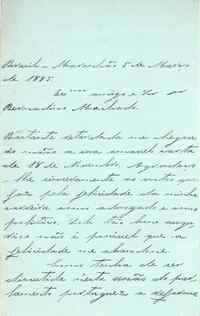 Brazil - Maranhão 5 de Março
de 1885
Exmo amigo e Snr Dr
Bernardino Machado
Bastante retardada me chegou
ás mãos a sua amavel carta
de 18 de Novembro. Agradeço-
lhe sinceramente os votos que
faz pela felicidade da minha
carreira como advogado e como
politico. Sob tão bons
não é possivel que a
felicidade me abandone.
Como tenha de ser
discutida nesta sessão do par-
lamento portuguez a